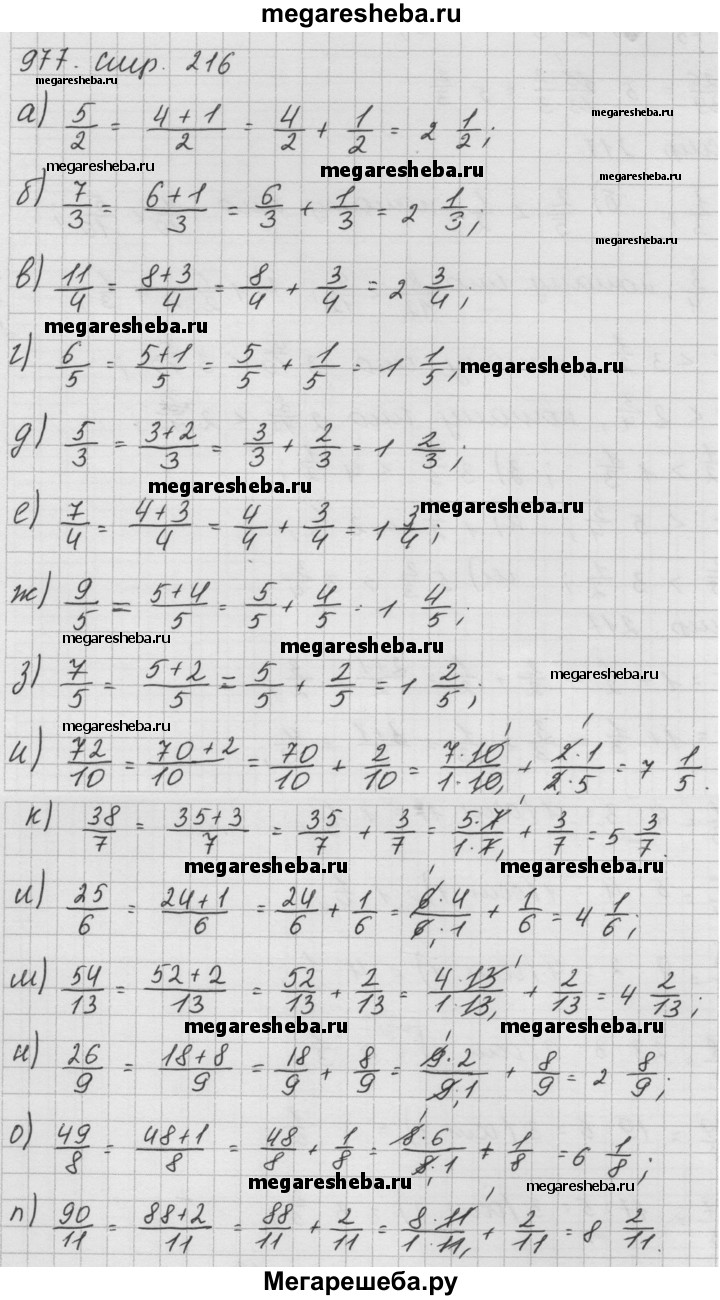 megaresheba.ru
977. стр. 216
megaresheba.ru
а) 5/2 = (4+1)/2 = 4/2 + 1/2 = 2 1/2;
megaresheba.ru
megaresheba.ru
megaresheba.ru
megaresheba.ru
б) 7/3 = (6+1)/3 = 6/3 + 1/3 = 2 1/3;
megaresheba.ru
в) 11/4 = (8+3)/4 = 8/4 + 3/4 = 2 3/4;
megaresheba.ru
г) 6/5 = (5+1)/5 = 5/5 + 1/5 = 1 1/5;
megaresheba.ru
д) 5/3 = (3+2)/3 = 3/3 + 2/3 = 1 2/3;
megaresheba.ru
е) 7/4 = (4+3)/4 = 4/4 + 3/4 = 1 3/4;
megaresheba.ru
ж) 9/5 = (5+4)/5 = 5/5 + 4/5 = 1 4/5;
megaresheba.ru
megaresheba.ru
з) 7/5 = (5+2)/5 = 5/5 + 2/5 = 1 2/5;
megaresheba.ru
megaresheba.ru
и) 72/10 = (70+2)/10 = 70/10 + 2/10 = (7·10)/(1·10) + (2·1)/(2·5) = 7 1/5.
к) 38/7 = (35+3)/7 = 35/7 + 3/7 = (5·7)/(1·7) + 3/7 = 5 3/7.
megaresheba.ru
megaresheba.ru
л) 25/6 = (24+1)/6 = 24/6 + 1/6 = (6·4)/(6·1) + 1/6 = 4 1/6;
м) 54/13 = (52+2)/13 = 52/13 + 2/13 = (4·13)/(1·13) + 2/13 = 4 2/13;
megaresheba.ru
megaresheba.ru
н) 26/9 = (18+8)/9 = 18/9 + 8/9 = (9·2)/(9·1) + 8/9 = 2 8/9;
о) 49/8 = (48+1)/8 = 48/8 + 1/8 = (8·6)/(8·1) + 1/8 = 6 1/8;
megaresheba.ru
megaresheba.ru
п) 90/11 = (88+2)/11 = 88/11 + 2/11 = (8·11)/(1·11) + 2/11 = 8 2/11.
Мегарешеба.ру